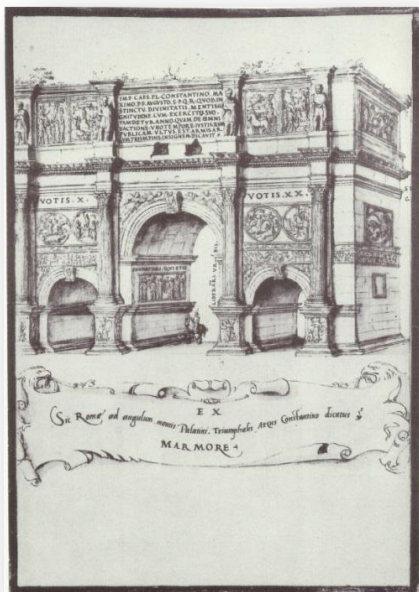 IMP. CAES. FL. CONSTANTINO. MA
XIMO. P. F. AVGVSTO. S. P. Q. R. QVOD. IN
STINCTV. DIVINITATIS. MENTIS
GNITVDINE. CVM. EXERCITV. SVO
TAM DE TYRANNO. QVAM. DE. OMNI
FACTIONE. VNO TEMPORE. IVSTIS. REM
PVBLICAM. VLTVS. EST. ARMIS. AR
CVM TRIVMPHIS. INSIGNEM DICAVIT
VOTIS. X.
VOTIS. XX.
EX
Sic Romæ ad angulum montis Palatini. Triumphalis Arcus Constantino dicatus
MARMORE